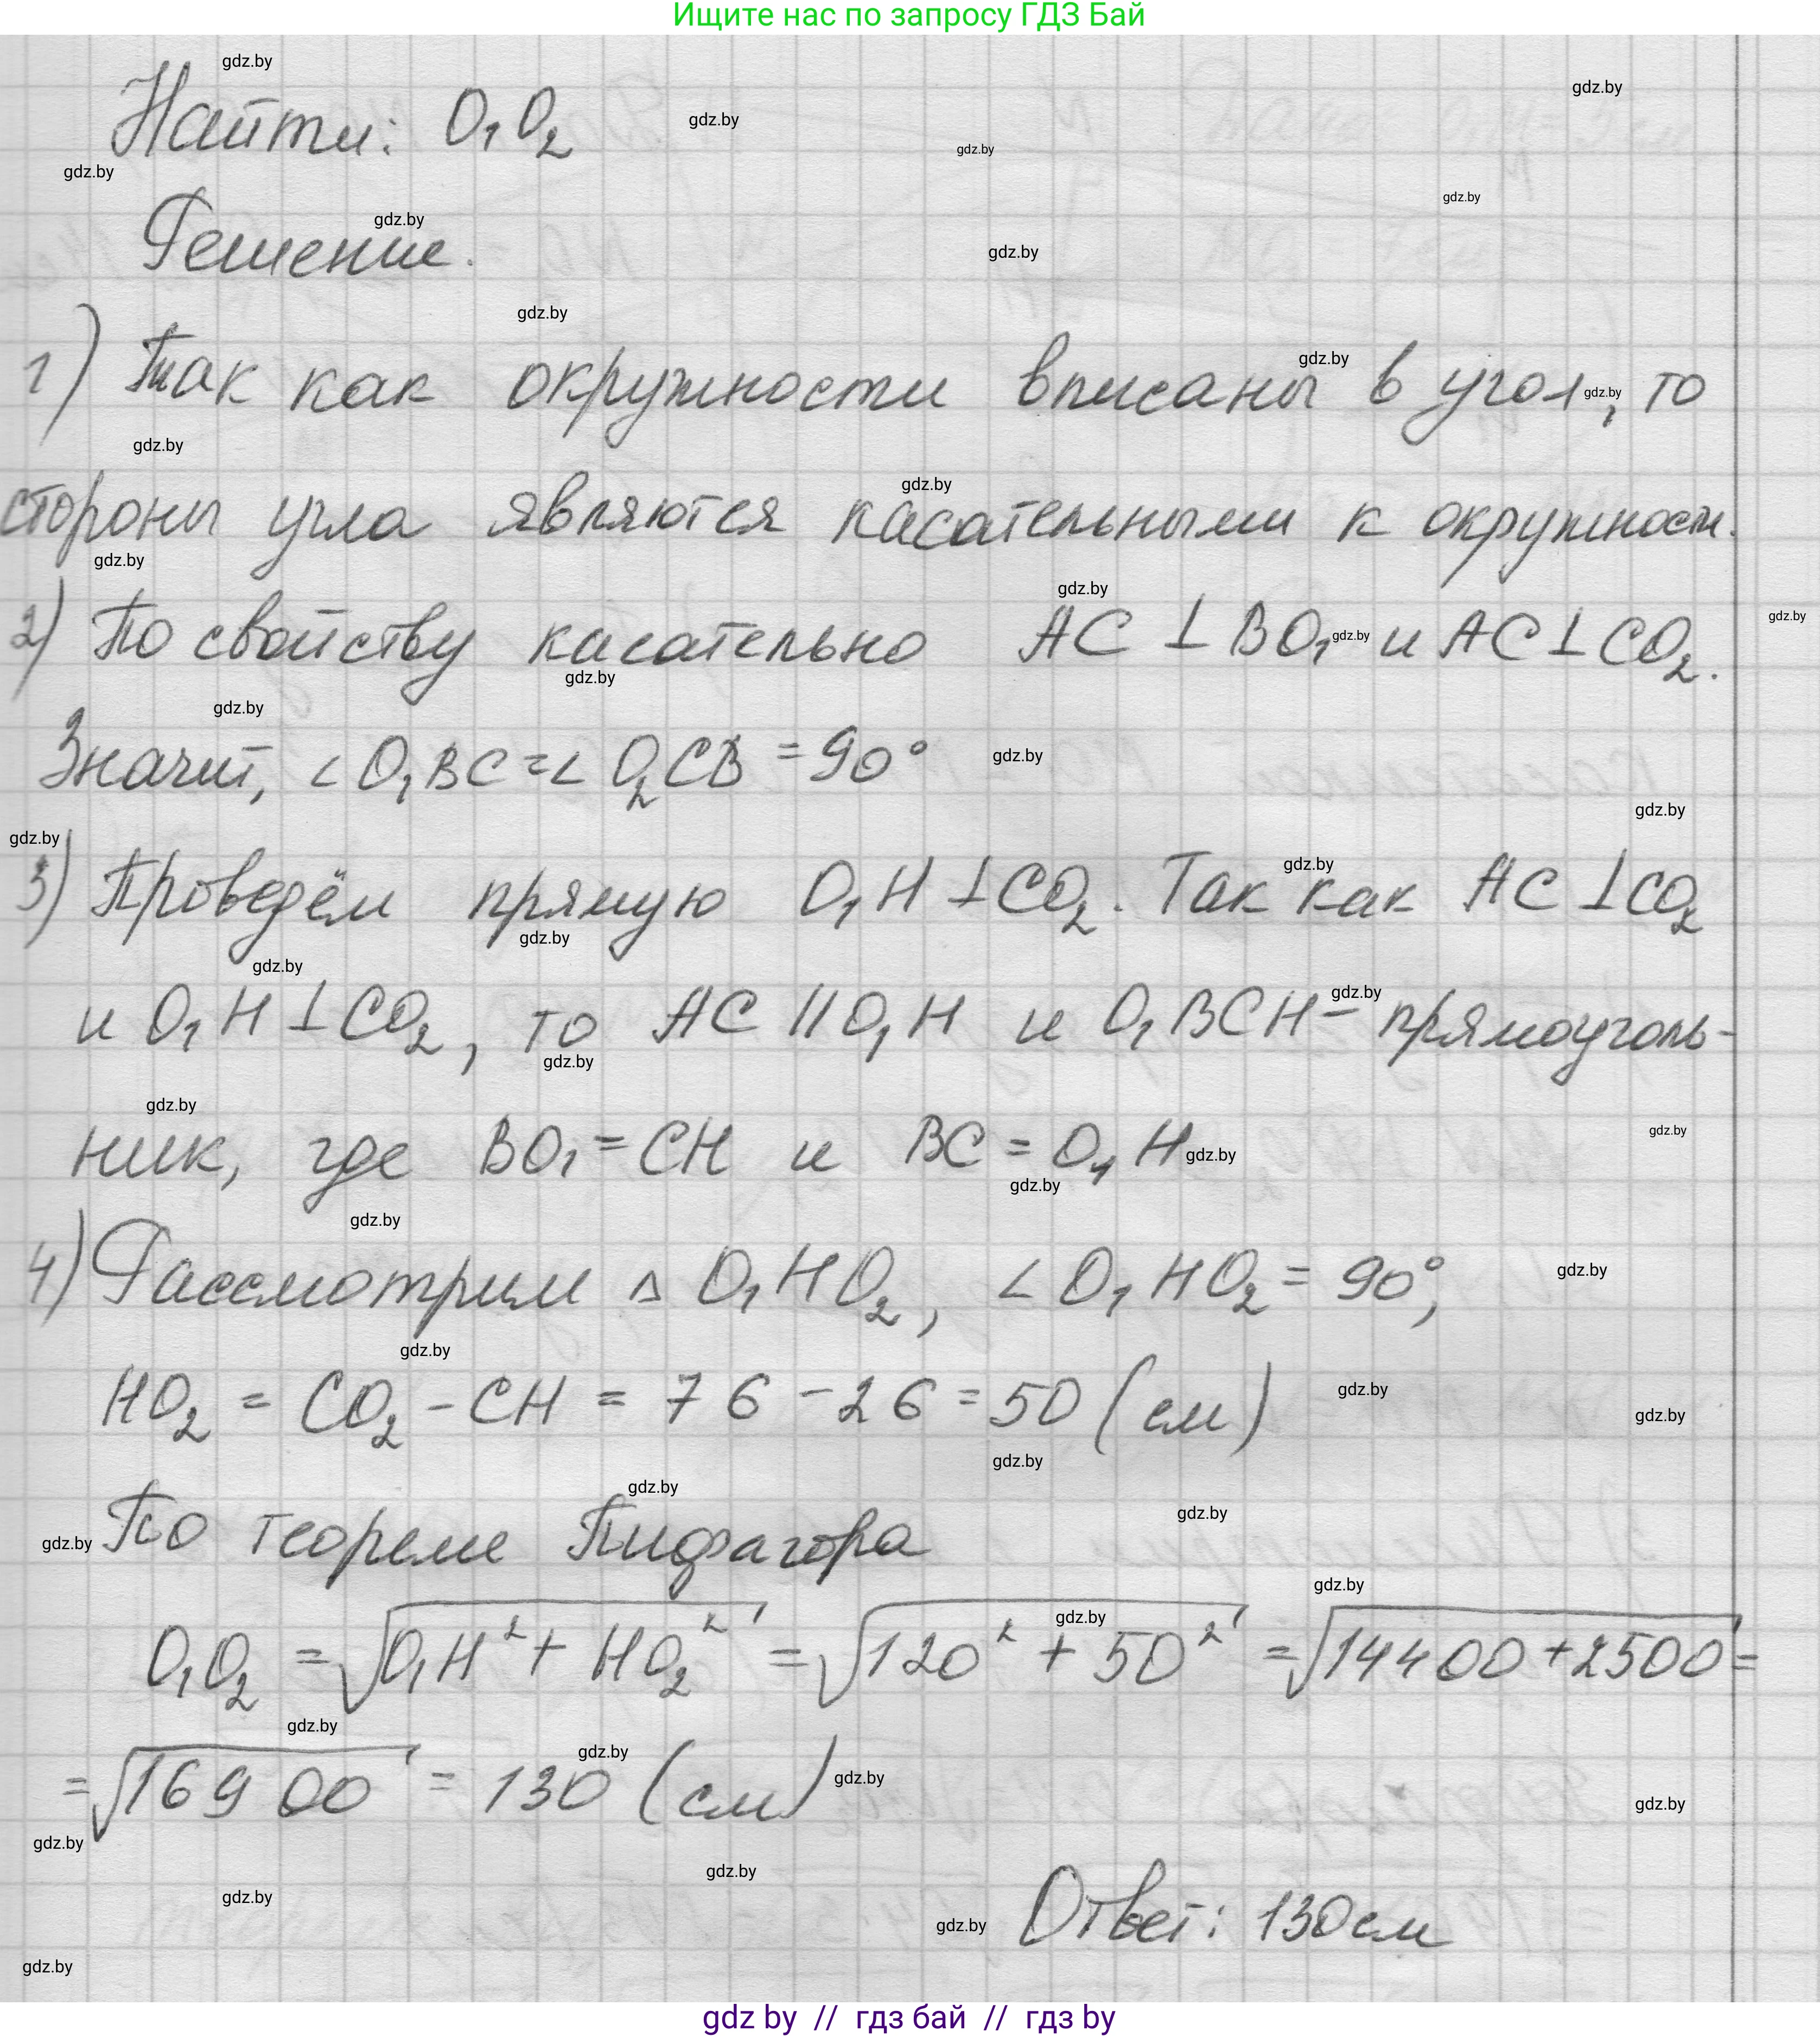 Ищите нас по запросу ГДЗ Бай
Найти: O₁O₂
Решение.
1) Так как окружности вписаны в угол, то
стороны угла являются касательными к окружности.
2) По свойству касательно AC ⊥ BO₁ и AC ⊥ CO₂.
Значит, ∠O₁BC = ∠O₂CB = 90°
3) Проведём прямую O₁H ⊥ CO₂. Так как AC ⊥ CO₂
и O₁H ⊥ CO₂, то AC || O₁H и O₁BCH - прямоуголь-
ник, где BO₁ = CH и BC = O₁H
4) Рассмотрим △ O₁HO₂, ∠O₁HO₂ = 90°,
HO₂ = CO₂ - CH = 76 - 26 = 50 (см)
По теореме Пифагора
O₁O₂ = √(O₁H² + HO₂²) = √(120² + 50²) = √(14400 + 2500) =
= √(16900) = 130 (см)
Ответ: 130 см
gdz by // гдз бай // гдз by